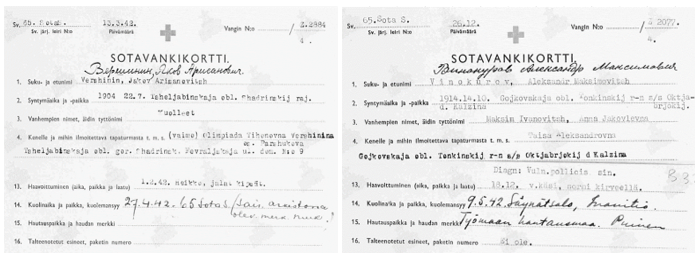 Sv. 65. Sotas. 13.3.42. Vangin N:o S.2484
Sv. järj. leiri N:o Päivämäärä
4.
SOTAVANKIKORTTI.
Вершинин, Яков
1. Suku- ja etunimi Vershinin, Jakov
2. Syntymäaika ja -paikka 1904 22.7. Tsheljabinskaja obl. Shadrinskij raj.
3. Vanhempien nimet, äidin tyttönimi Kuolleet
4. Kenelle ja mihin ilmoitettava tapaturmasta t. m. s. (vaimo) Olimpiada Tihonovna Vershinina
Tsheljabinskaja obl. gor. Shadrinsk.
13. Haavoittuminen (aika, paikka ja laatu)
14. Kuolinaika ja paikka, kuolemansyy 27.4.42. 65 Sotas
15. Hautauspaikka ja haudan merkki
16. Talteenotetut esineet, paketin numero
Sv. 65.Sota S. 26.12. Vangin N:o S 2077.
Sv. järj. leiri N:o Päivämäärä
4.
SOTAVANKIKORTTI.
Александр Максимович
1. Suku- ja etunimi Vinokurov, Aleksandr Maksimovitsh
2. Syntymäaika ja -paikka 1914.14.10. Gojkovskaja obl. Tonkinskij r-n s/s Oktja-
brjokij.
d. Kalzina
3. Vanhempien nimet, äidin tyttönimi Maksim Ivanovitsh, Anna Jakovlevna
4. Kenelle ja mihin ilmoitettava tapaturmasta t. m. s. Taisa Aleksandrovna
Gojkovskaja obl. Tonkinskij r-n s/s Oktjabrjokij d Kalzina
Diagn: Vuln. pollicis sin.
13. Haavoittuminen (aika, paikka ja laatu) 18.12. v.käsi, kirveellä.
14. Kuolinaika ja paikka, kuolemansyy 9.5.42 Säynätsalo,
15. Hautauspaikka ja haudan merkki Työmaan hautausmaa. Puinen
16. Talteenotetut esineet, paketin numero Ei ole.